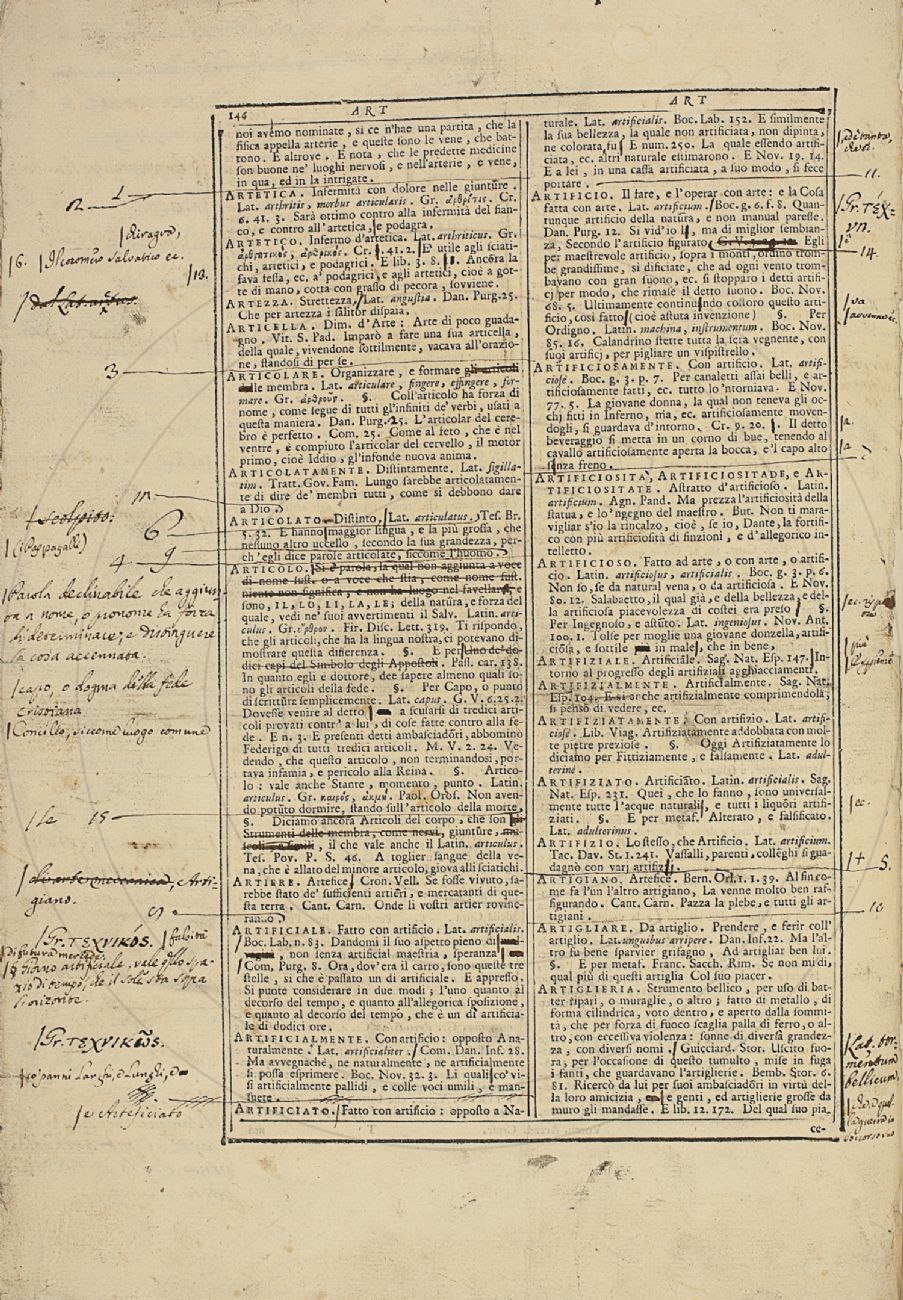 146
ART
ART
noi avemo nominate, si ce n'hae una partita, che la
fisica appella arterie, e queste sono le vene, che bat-
tono. E altrove. E nota, che le predette medicine
son buone ne' luoghi nervosi, e nell'arterie, e vene,
in qua, ed in la intrigate.
ARTETICA. Infermità con dolore nelle giunture.
Lat. arthritis, morbus articularis. Gr. ἀρθρῖτις. Cr.
6. 41. 3. Sarà ottimo contro alla infermità del fian-
co, e contro all'artetica, e podagra.
ARTETICO. Infermo d'artetica. Lat. arthriticus. Gr.
ἀρθριτικός, Cr. 41. 2. E' utile agli sciati-
chi, artetici, e podagrici. E lib. 3. 8. 11. Ancora la
fava fessa, ec. a' podagrici, e agli artetici, cioè a got-
te di mano, cotta con grasso di pecora, sovviene.
ARTEZZA. Strettezza, Lat. angustia. Dan. Purg. 25.
Che per artezza i salitor dispaia.
ARTICELLA. Dim. d'Arte: Arte di poco guada-
gno. Vit. S. Pad. Imparò a fare una sua articella,
della quale, vivendone sottilmente, vacava all'orazio-
ne, standosi di per se.
ARTICOLARE. Organizzare, e formare gli articoli
delle membra. Lat. articulare, fingere, effingere, for-
mare. Gr. ἀρθροῦν. §. Coll'articolo ha forza di
nome, come segue di tutti gl'infiniti de' verbi, usati a
questa maniera. Dan. Purg. 25. L'articolar del cere-
bro è perfetto. Com. 25. Come al feto, che è nel
ventre, è compiuto l'articolar del cervello, il motor
primo, cioè Iddio, gl'infonde nuova anima.
ARTICOLATAMENTE. Distintamente. Lat. sigilla-
tim. Tratt. Gov. Fam. Lungo sarebbe articolatamen-
te di dire de' membri tutti, come si debbono dare
a Dio
ARTICOLATO. Distinto, Lat. articulatus. Tes. Br.
5. 32. E hanno maggior lingua, e la più grossa, che
nessuno altro uccello, secondo la sua grandezza, per-
ch'egli dice parole articolate, siccome l'huomo.
ARTICOLO. Si è parola, la qual non aggiunta a voce
di nome sust. o a voce che stia, come nome sust.
niente non significa, e non ha luogo nel favellare, e
sono, IL, LO, LI, LA, LE; della natura, e forza del
quale, vedi ne' suoi avvertimenti il Salv. Latin. arti-
culus. Gr. ἄρθρον. Fir. Disc. Lett. 319. Ti rispondo,
che gli articoli, che ha la lingua nostra, ci potevano di-
mostrare questa differenza. §. E per Uno de' do-
dici capi del Simbolo degli Appostoli. Pass. car. 138.
In quanto egli è dottore, dee sapere almeno quali so-
no gli articoli della fede. §. Per Capo, o punto
di scrittura semplicemente. Lat. caput. G. V. 6. 25. 2.
Dovesse venire al detto a scusarsi di tredici arti-
coli provati contr'a lui, di cose fatte contro alla fe-
de. E n. 3. E presenti detti ambasciadori, abbominò
Federigo di tutti tredici articoli. M. V. 2. 24. Ve-
dendo, che questo articolo, non terminandosi, por-
tava infamia, e pericolo alla Reina. §. Artico-
lo: vale anche Stante, momento, punto. Latin.
articulus. Gr. καιρός, ἀκμή. Paol. Oros. Non aven-
do potuto dormire, stando sull'articolo della morte,
§. Diciamo ancora Articoli del corpo, che son gli
Strumenti delle membra, come nervi, giunture, mu-
scoli, e simili, il che vale anche il Latin. articulus.
Tes. Pov. P. S. 46. A toglier sangue della ve-
na, che è allato del minore articolo, giova alli sciatichi.
ARTIERE. Artefice. Cron. Vell. Se fosse vivuto, sa-
rebbe stato de' sufficienti artieri, e mercatanti di que-
sta terra. Cant. Carn. Onde li vostri artier rovine-
ranno
ARTIFICIALE. Fatto con artificio. Lat. artificialis.
Boc. Lab. n. 83. Dandomi il suo aspetto pieno di
non senza artificial maestria, speranza
Com. Purg. 8. Ora, dov'era il carro, sono queste tre
stelle, sì che è passato un dì artificiale. E appresso.
Si puote considerare in due modi; l'uno quanto al
decorso del tempo, e quanto all'allegorica sposizione,
e quanto al decorso del tempo, che è un dì artificia-
le di dodici ore.
ARTIFICIALMENTE. Con artificio: opposto A na-
turalmente. Lat. artificialiter. Com. Dan. Inf. 28.
Ma avvegnachè, nè naturalmente, nè artificialmente
si possa esprimere. Boc. Nov. 32. 3. Li quali co' vi-
si artificialmente pallidi, e colle voci umili, e man-
suete.
ARTIFICIATO. Fatto con artificio: opposto a Na-
turale. Lat. artificialis. Boc. Lab. 152. E similmente
la sua bellezza, la quale non artificiata, non dipinta,
ne colorata, fu E num. 250. La quale essendo artifi-
ciata, ec. altri naturale estimarono. E Nov. 19. 14.
E a lei, in una cassa artificiata, a suo modo, si fece
portare.
ARTIFICIO. Il fare, e l'operar con arte: e la Cosa
fatta con arte. Lat. artificium. Boc. g. 6. f. 8. Quan-
tunque artificio della natura, e non manual paresse.
Dan. Purg. 12. Si vid'io lì, ma di miglior sembian-
za, Secondo l'artificio figurato G. V. 5. 29. 12. Egli
per maestrevole artificio, sopra i monti, ordinò trom-
be grandissime, si dificiate, che ad ogni vento trom-
bavano con gran suono, ec. si stopparo i detti artifi-
cj per modo, che rimase il detto suono. Boc. Nov.
68. 5. Ultimamente continuando costoro questo arti-
ficio, così fatto (cioè astuta invenzione) §. Per
Ordigno. Latin. machina, instrumentum. Boc. Nov.
85. 16. Calandrino stette tutta la sera vegnente, con
suoi artificj, per pigliare un vispistrello.
ARTIFICIOSAMENTE. Con artificio. Lat. artifi-
ciosè. Boc. g. 3. p. 7. Per canaletti assai belli, e ar-
tificiosamente fatti, ec. tutto lo 'ntorniava. E Nov.
77. 5. La giovane donna, la qual non teneva gli oc-
chi fitti in Inferno, ma, ec. artificiosamente moven-
dogli, si guardava d'intorno. Cr. 9. 20. Il detto
beveraggio si metta in un corno di bue, tenendo al
cavallo artificiosamente aperta la bocca, e 'l capo alto
senza freno.
ARTIFICIOSITÀ, ARTIFICIOSITADE, e AR-
TIFICIOSITATE. Astratto d'artificioso. Latin.
artificium. Agn. Pand. Ma prezza l'artificiosità della
statua, e lo 'ngegno del maestro. But. Non ti mara-
vigliar s'io la rincalzo, cioè, se io, Dante, la fortifi-
co con più artificiosità di finzioni, e d'allegorico in-
telletto.
ARTIFICIOSO. Fatto ad arte, o con arte, o artifi-
cio. Latin. artificiosus, artificialis. Boc. g. 3. p. 6.
Non so, se da natural vena, o da artificiosa. E Nov.
80. 12. Salabaetto, il qual già, e della bellezza, e del-
artificiosa piacevolezza di costei era preso §.
Per Ingegnoso, e astuto. Lat. ingeniosus. Nov. Ant.
100. 1. Tolse per moglie una giovane donzella, artifi-
ciosa, e sottile in male, che in bene,
ARTIFIZIALE. Artificiale. Sag. Nat. Esp. 147. In-
torno al progresso degli artifiziali agghiacciamenti.
ARTIFIZIALMENTE. Artificialmente. Sag. Nat.
Esp. 104. E si anche artifizialmente comprimendola,
si pensò di vedere, ec.
ARTIFIZIATAMENTE. Con artifizio. Lat. artifi-
ciosè. Lib. Viag. Artifiziatamente addobbata con mol-
te pietre preziose. §. Oggi Artifiziatamente lo
diciamo per Fittiziamente, e falsamente. Lat. adul-
terinè.
ARTIFIZIATO. Artificiato. Latin. artificialis. Sag.
Nat. Esp. 231. Quei, che lo fanno, sono universal-
mente tutte l'acque naturali, e tutti i liquori artifi-
ziati. §. E per metaf. Alterato, e falsificato.
Lat. adulterinus.
ARTIFIZIO. Lo stesso, che Artificio. Lat. artificium.
Tac. Dav. St. 1. 241. Vassalli, parenti, colleghi si gua-
dagnò con varj artifizi.
ARTIGIANO. Artefice. Bern. Orl. 1. 1. 39. Al fin co-
me fa l'un l'altro artigiano, La venne molto ben raf-
figurando. Cant. Carn. Pazza la plebe, e tutti gli ar-
tigiani.
ARTIGLIARE. Da artiglio. Prendere, e ferir coll'
artiglio. Lat. unguibus arripere. Dan. Inf. 22. Ma l'al-
tro fu bene sparvier grifagno, Ad artigliar ben lui.
§. E per metaf. Franc. Sacch. Rim. Se non mi di,
qual più di questi artiglia Col suo piacer.
ARTIGLIERIA. Strumento bellico, per uso di bat-
ter ripari, o muraglie, o altro; fatto di metallo, di
forma cilindrica, voto dentro, e aperto dalla sommi-
tà, che per forza di fuoco scaglia palla di ferro, o al-
tro, con eccessiva violenza: sonne di diversa grandez-
za, e con diversi nomi. Guicciard. Stor. Uscito fuo-
ra, per l'occasione di questo tumulto, mise in fuga
i fanti, che guardavano l'artiglierie. Bemb. Stor. 6.
81. Ricercò da lui per suoi ambasciadori in virtù del-
la loro amicizia, e genti, ed artiglierie grosse da
muro gli mandasse. E lib. 12. 172. Del qual suo pia-
ce-
2 1
Rivagra,
6. Salvatico ec.
13.
3
m
scolpito.
6
(i Pappagalli)
4 9
Parola declinabile che aggiun-
ta a nome, o pronome ha forza
di determinare, e distinguere
la cosa accennata.
capo, o dogma della fede
cristiana
Concilio, siccome luogo comune
le 15
e Arti-
giano.
Gr. ΤΕΧΝΙΚÓΣ.
§ Giorno artificiale, vale q.llo spa-
zio di tempo, che il sole sta sopra
l'orizonte.
Gr. ΤΕΧΝΙΚῶΣ.
co' panni larghi, e lunghi, e
e Arteficiato
11.
Gr. ΤÉΧ-
νη.
14.
va
ec.
più
ec.
5.
10
Lat. tor-
mentum
bellicum.